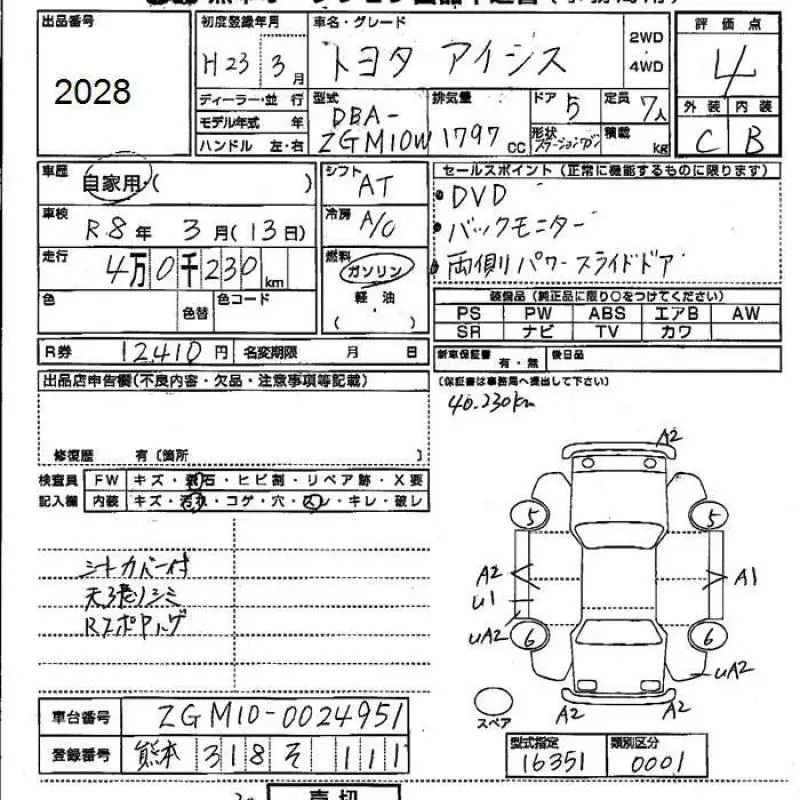 出品番号
2028
初度登録年月
H23 3月
車名・グレード
トヨタ アイシス
2WD
・
4WD
評価点
4
外装 内装
C B
ディーラー・並行
モデル年式 年
ハンドル 左・右
型式
DBA-
ZGM10W
排気量
1797 CC
ドア 5
定員 7人
形状
積載 kg
車歴
自家用・( )
シフト
AT
車検
R8年 3月(13日)
冷房
A/C
走行
4万0千230km
燃料
ガソリン
・
軽油
( )
色
色替
色コード
セールスポイント(正常に機能するものに限ります)
・DVD
・バックモニター
・両側パワースライドドア
装備品(純正品に限り○をつけてください)
PS PW ABS エアB AW
SR ナビ TV カワ
R券 12410円
名変期限 月 日
新車保証書 有・無
後日品
(保証書は事務局へ提出して下さい)
40.230km
出品店申告欄(不良内容・欠品・注意事項等記載)
修復歴 有〔箇所 〕
検査員 FW キズ・飛石・ヒビ割・リペア跡・X要
記入欄 内装 キズ・汚れ・コゲ・穴・スレ・キレ・破レ
シートカバー付
天張りシミ
A2
5 5
A2 A1
U1
UA2 6 6
UA2
A2 A2
スペア
車台番号 ZGM10-0024951
登録番号 熊本 318 そ 111
型式指定
16351
類別区分
0001
売切